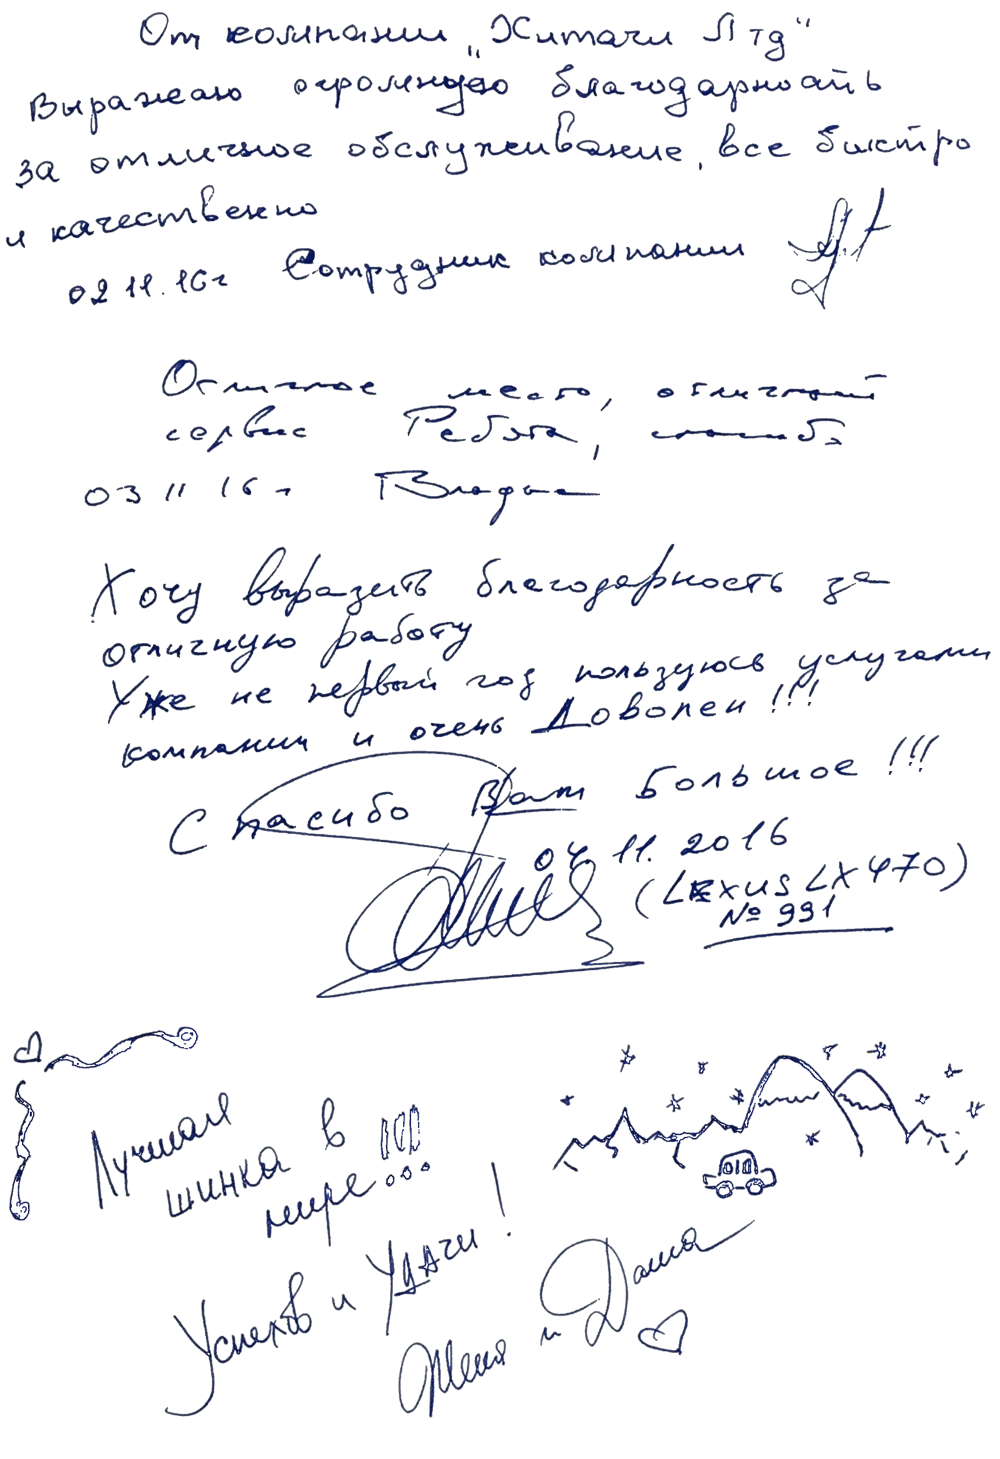 От компании „Хитачи Лтд"
Выражаю огромную благодарность
за отличное обслуживание, все быстро
и качественно
02 11. 16г Сотрудник компании
Отличное место, отличный
сервис Ребята, спасибо
03 11 16г
Хочу выразить благодарность за
отличную работу
Уже не первый год пользуюсь услугами
компании и очень Доволен!!!
Спасибо Вам Большое!!!
04 11. 2016
(LEXUS LX 470)
№ 991
Лучшая
шинка в
мире!!!
Успехов и Удачи!
Женя и Даша